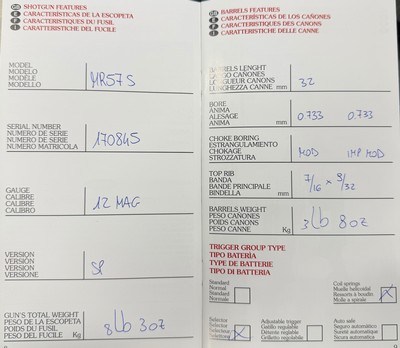 GB SHOTGUN FEATURES
E CARACTERÍSTICAS DE LA ESCOPETA
F CARACTERISTIQUES DU FUSIL
I CARATTERISTICHE DEL FUCILE
MODEL
MODELO
MODÈLE
MODELLO
MR57S
SERIAL NUMBER
NUMERO DE SERIE
NUMÉRO DE SÉRIE
NUMERO MATRICOLA
170845
GAUGE
CALIBRE
CALIBRE
CALIBRO
12 MAG
VERSION
VERSIÓN
VERSION
VERSIONE
SP
GUN'S TOTAL WEIGHT
PESO DE LA ESCOPETA
POIDS DU FUSIL
PESO DEL FUCILE Kg
8lb 3oz
8
GB BARRELS FEATURES
E CARACTERÍSTICAS DE LOS CAÑONES
F CARACTERISTIQUES DES CANONS
I CARATTERISTICHE DELLE CANNE
BARRELS LENGHT
LARGO CAÑONES
LONGUEUR CANONS
LUNGHEZZA CANNE mm
32
BORE
ANIMA
ALESAGE
ANIMA mm
0.733 0.733
CHOKE BORING
ESTRANGULAMIENTO
CHOKAGE
STROZZATURA
MOD IMP MOD
TOP RIB
BANDA
BANDE PRINCIPALE
BINDELLA mm
7/16 x 9/32
BARRELS WEIGHT
PESO CAÑONES
POIDS CANONS
PESO CANNE Kg
3lb 8oz
TRIGGER GROUP TYPE
TIPO BATERÍA
TYPE DE BATTERIE
TIPO DI BATTERIA
Standard
Normal
Standard
Normale
Coil springs
Muella helicoidal
Ressorts à boudin
Molle a spirale
X
Selector
Selectivo
X
Adjustable trigger
Gatillo regulable
Détente réglable
Grilletto regolabile
Auto safe
Seguro automático
Sureté automatique
Sicura automatica
9